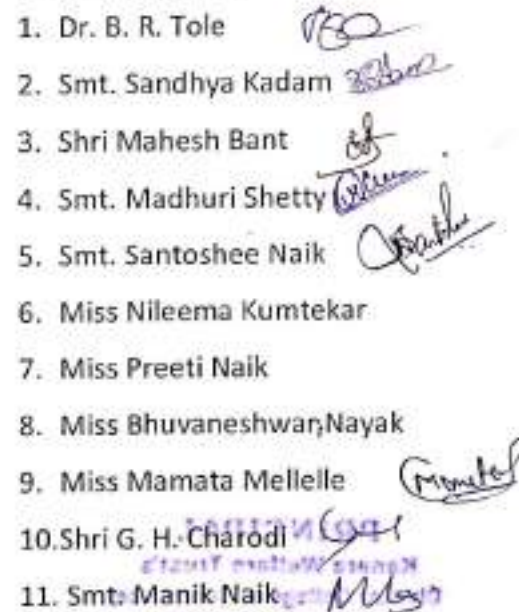 1. Dr. B. R. Tole
2. Smt. Sandhya Kadam
3. Shri Mahesh Bant
4. Smt. Madhuri Shetty
5. Smt. Santoshee Naik
6. Miss Nileema Kumtekar
7. Miss Preeti Naik
8. Miss Bhuvaneshwari Nayak
9. Miss Mamata Mellelle
10.Shri G. H. Charodi
Kanara Welfare Trust's
11. Smt. Manik Naik